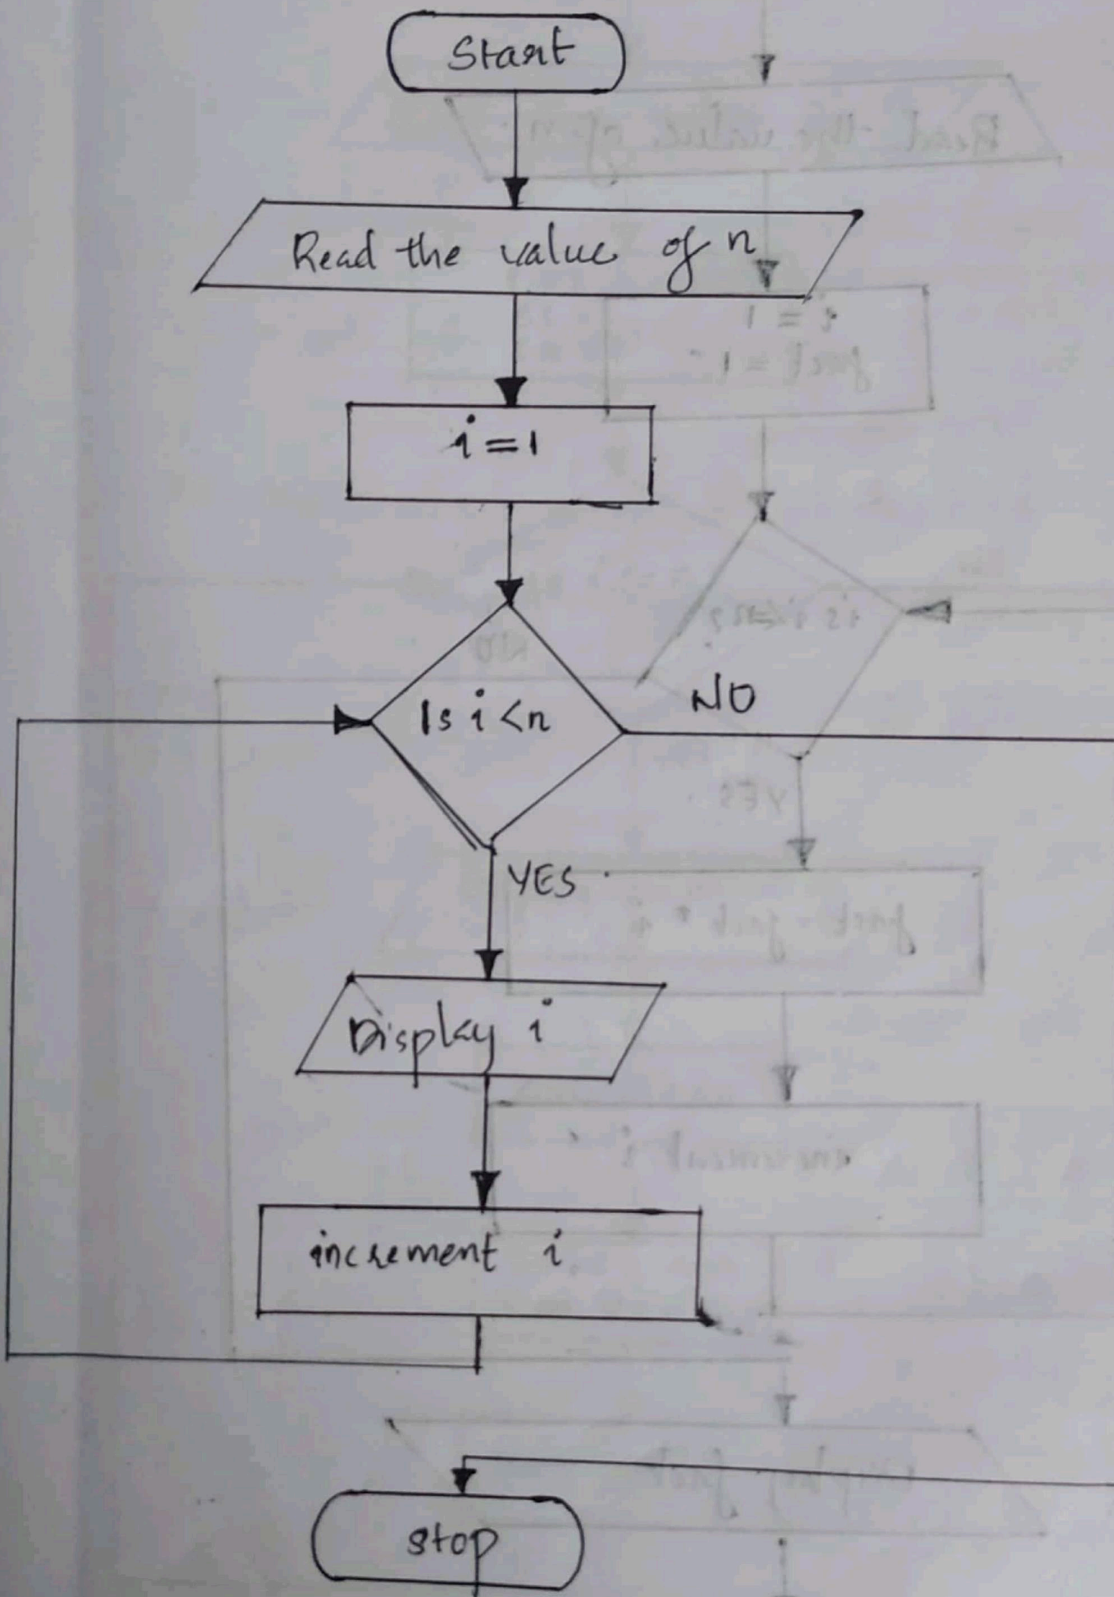 Start
Read the value of n
i=1
Is i<n
NO
YES
Display i
increment i
stop